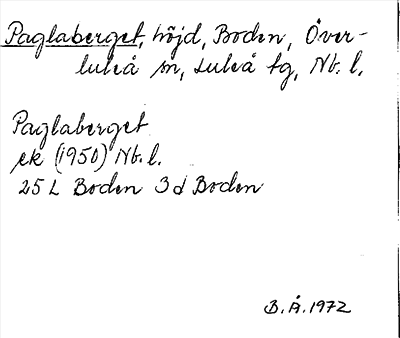 Paglaberget, höjd, Boden, Över-
luleå sn, Luleå tg, Nb. l.
Paglaberget
ek (1950) Nb. l.
25 L Boden 3 d Boden
B. Å. 1972